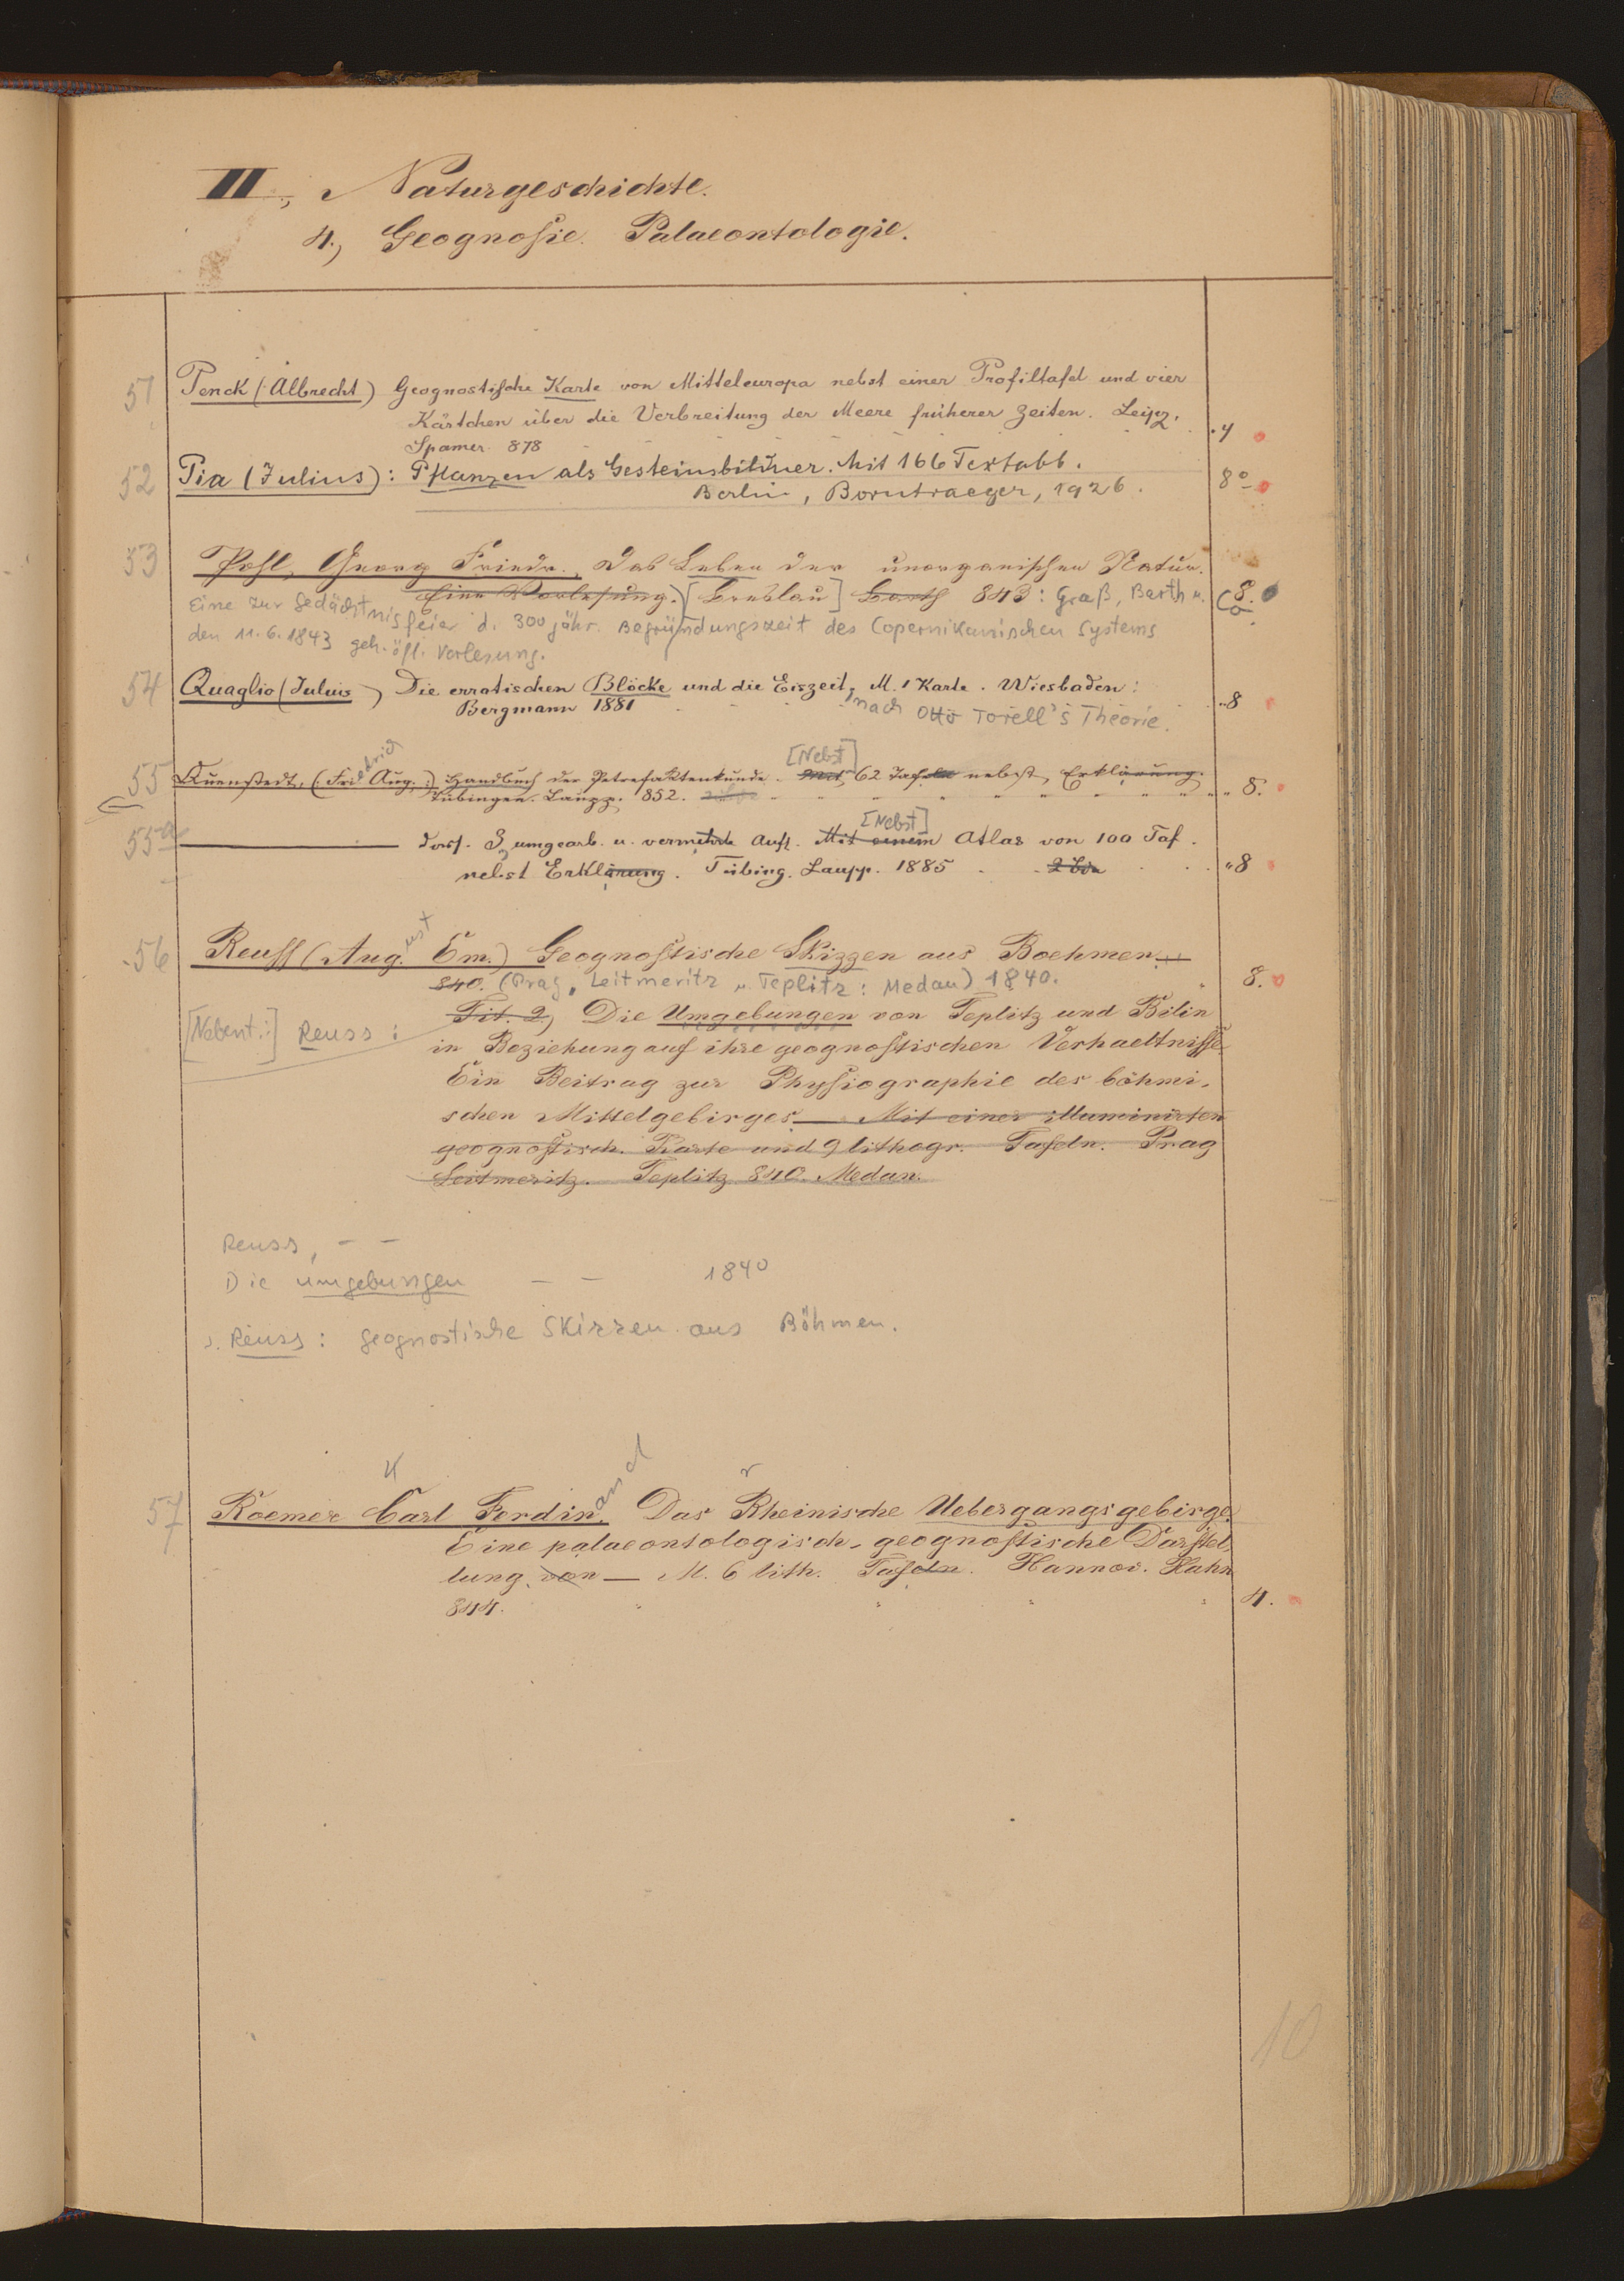 II., Naturgeschichte.
4., Geognosie. Palaeontologie.
51 Penck (Albrecht) Geognostische Karte von Mitteleuropa nebst einer Profiltafel und vier
Kärtchen über die Verbreitung der Meere früherer Zeiten. Leipz.
Spamer 878 4
52 Pia (Julius): Pflanzen als Gesteinsbildner. Mit 166 Textabb. 8°
Berlin, Borntraeger, 1926.
53 Pohl, Georg Friedr., Das Leben der unorganischen Natur.
Eine Vorlesung. [Breslau] Barth 843: Graß, Barth u. Co 8.
Eine zur Gedächtnisfeier d. 300 jähr. Begründungszeit des Copernikanischen Systems
den 11.6.1843 geh. öff. Vorlesung.
54 Quaglio (Julius) Die erratischen Blöcke und die Eiszeit, M. 1 Karte. Wiesbaden:
Bergmann 1881 nach Otto Torell's Theorie. 8
[Nebst]
55 Quenstedt, (Friedrich Aug.:) Handbuch der Petrefaktenkunde. Mit 62 Tafeln nebst Erklärung.
Tübingen. Laupp. 852. 8.
[Nebst]
55a dass. 3 umgearb. u. vermehrte Aufl. Mit einem Atlas von 100 Taf.
nebst Erklärung. Tübing. Laupp. 1885 2 Bde 8
56 Reuss (August Em.) Geognostische Skizzen aus Boehmen
840. (Prag, Leitmeritz u. Teplitz: Medau) 1840. 8.
[Nebent.:] Reuss: Tit. 2, Die Umgebungen von Teplitz und Bilin
in Beziehung auf ihre geognostischen Verhaeltnisse.
Ein Beitrag zur Physiographie des böhmi-
schen Mittelgebirges Mit einer illuminirten
geognostisch. Karte und 9 lithogr. Tafeln. Prag
Leitmeritz. Teplitz 840. Medau.
Reuss, – –
Die Umgebungen – – 1840
s. Reuss: Geognostische Skizzen aus Böhmen.
57 Roemer Carl Ferdinand Das Rheinische Uebergangsgebirge.
Eine palaeontologisch-geognostische Darstel-
lung von – M. 6 lith. Tafeln. Hannov. Hahn
844. 4.
10